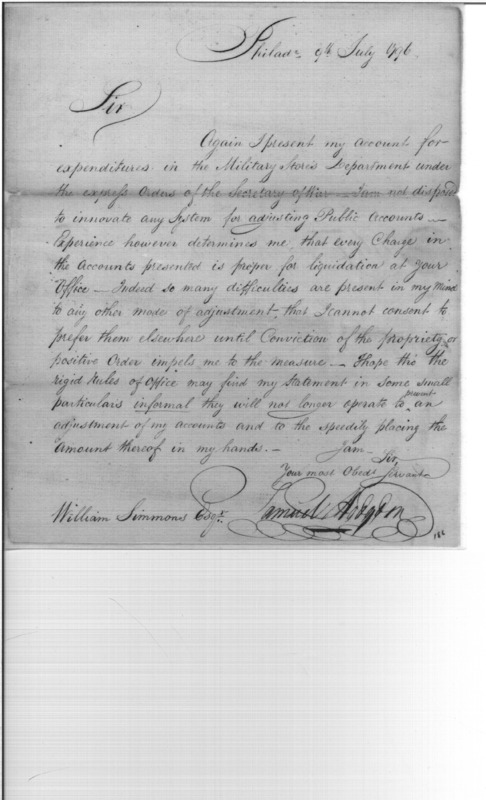 Philada. 9th July 1796
Sir
Again I present my account for
expenditures in the Military Stores Department under
the express Orders of the Secretary of War — I am not disposed
to innovate any System for adjusting Public Accounts —
Experience however determines me that every Charge in
the Accounts presented is proper for liquidation at your
Office — Indeed so many difficulties are present in my mind
to any other mode of adjustment, that I cannot consent to
prefer them elsewhere until Conviction of the propriety or
positive Order impels me to the measure — I hope tho' the
rigid Rules of Office may find my Statement in Some small
particulars informal they will not longer operate to prevent an
adjustment of my accounts and to the speedily placing the
Amount thereof in my hands. —
I am —
Sir
Your most Obedt Servant
William Simmons Esqr.
Samuel Hodgdon